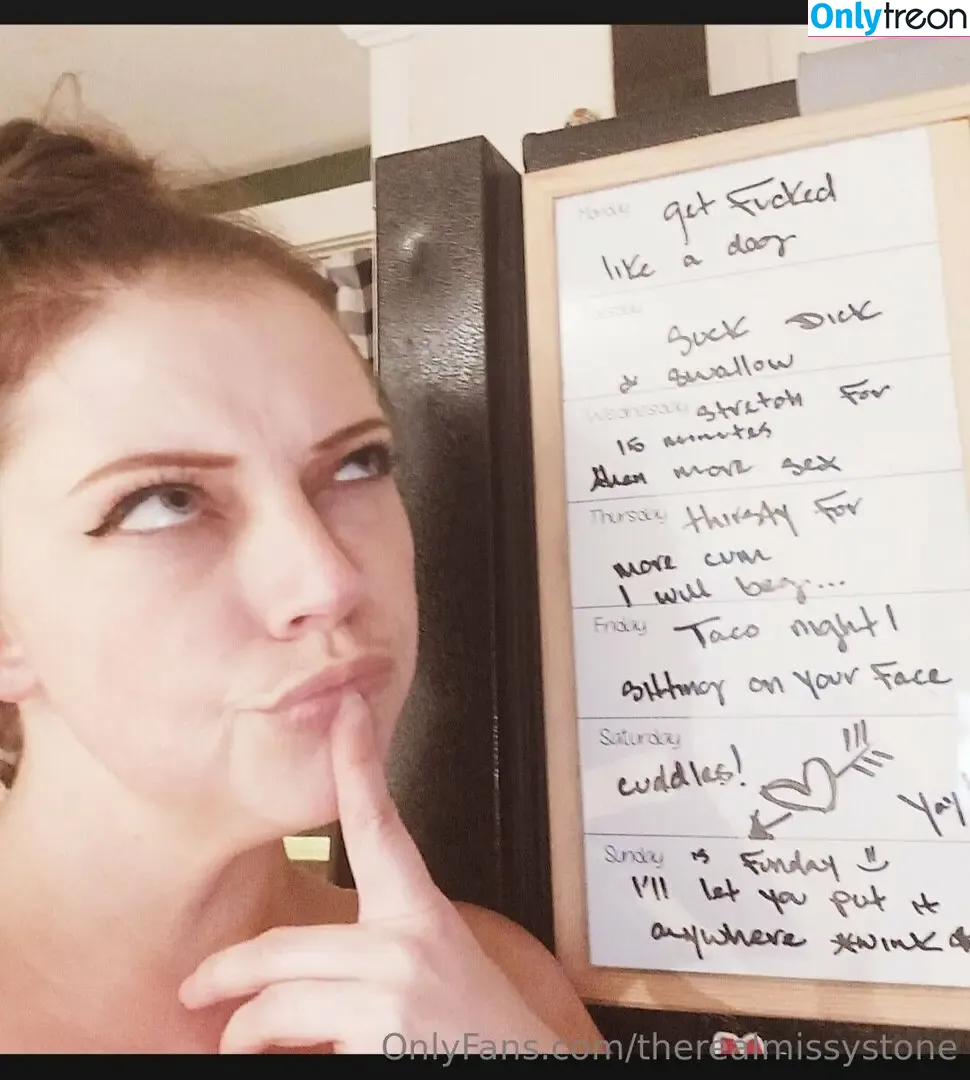 Onlytreon
Monday get Fucked
like a dog
Suck Dick
& swallow
Wednesday stretch for
15 minutes
then more sex
Thursday thirsty for
more cum
I will beg....
Friday Taco night!
sitting on your Face
Saturday
cuddles!
Yay!
Sunday is Funday
I'll let you put it
anywhere *wink
OnlyFans.com/therealmissystone